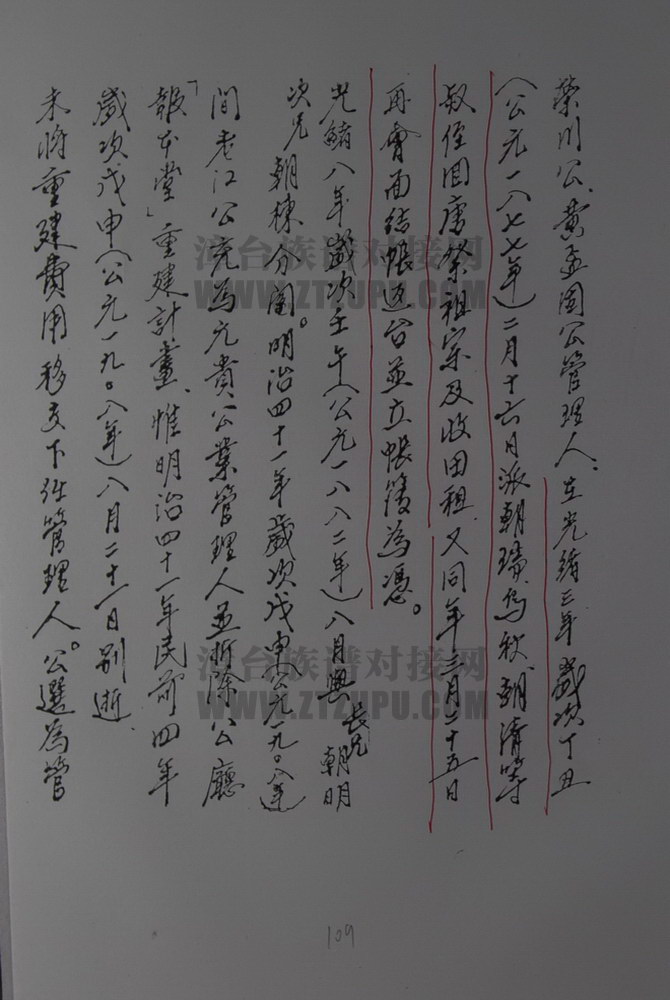 榮川公、黃孟國公管理人、在光緒三年歲次丁丑
(公元一八七七年)二月十六日派朝瑞、烏秋、朝清等
叔侄回唐祭祖宗及收田租、又同年三月二十五日
再會面結帳返台並立帳簿為憑。
光緒八年歲次壬午(公元一八八二年)八月與長兄朝明
次兄朝棟分鬮。明治四十一年歲次戊申(公元一九〇八年)
間老江公充為元貴公業管理人並拆除公廳
「報本堂」重建計畫、惟明治四十一年民前四年
歲次戊申(公元一九〇八年)八月二十一日別逝、
未將重建費用移交下任管理人。公選為管
109
台族谱对接网
WWW.ZTZUPU.COM
台族谱对接网
WWW.ZTZUPU.COM